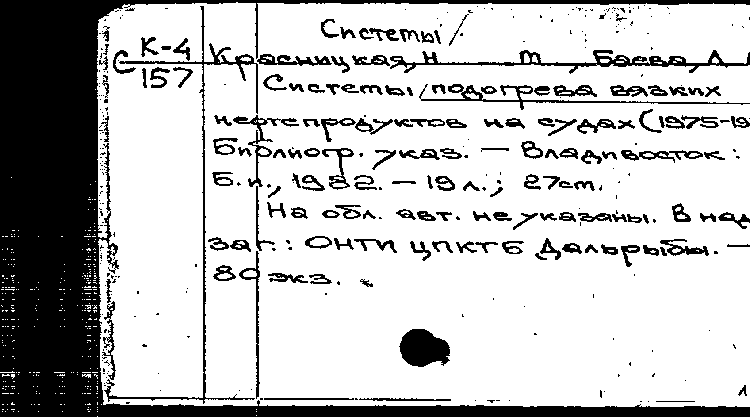 Системы /
С К-4
157
Красницкая, Н Т , Баева, Л
Системы / подогрева вязких
нефтепродуктов на судах (1975-19
Библиогр. указ. — Владивосток :
Б.и., 1982. — 19 л.; 27 cm.
На обл. авт. не указаны. В над
заг.: ОНТИ ЦПКТБ Дальрыбы. —
80 экз.